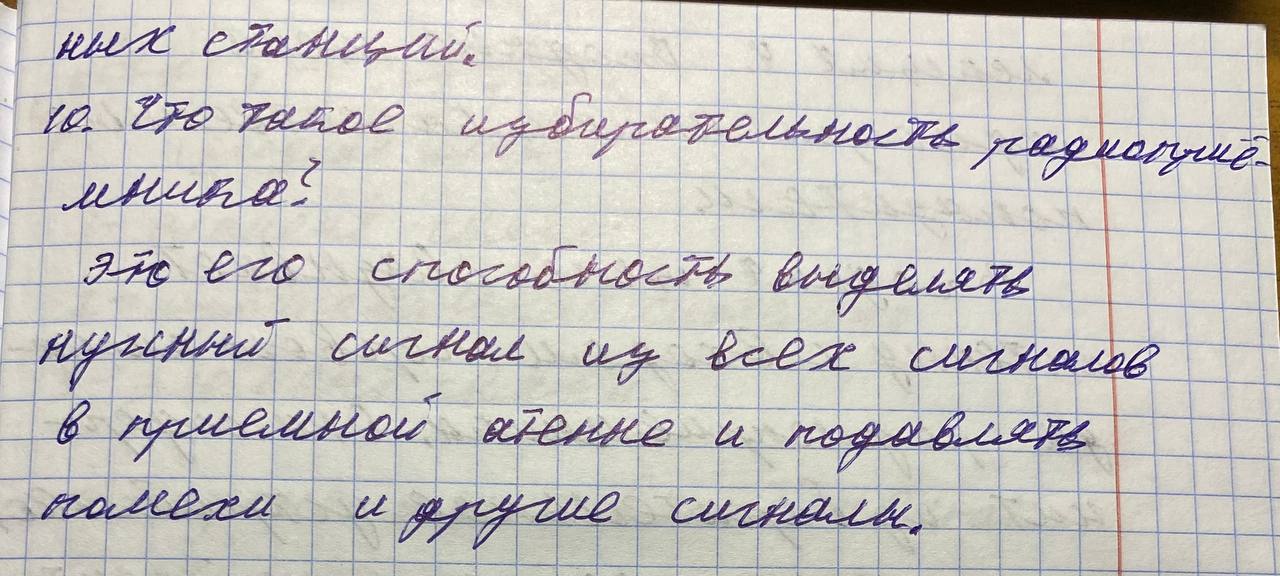 ных станций.
10. Что такое избирательность радиоприё-
мника?
это его способность выделять
нужный сигнал из всех сигналов
в приемной атенне и подавлять
помехи и другие сигналы.